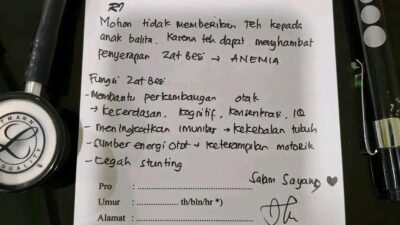 R/
Mohon tidak memberikan teh kepada
anak balita. Karena teh dapat menghambat
penyerapan zat Besi → ANEMIA
Fungsi Zat Besi
- Membantu perkembangan otak
→ Kecerdasan, Kognitif, Konsentrasi, IQ
- meningkatkan imunitas → kekebalan tubuh
- Sumber energi otot → keterampilan motorik
- Cegah stunting
Salam Sayang
Pro : ..............................
Umur : .................... th/bln/hr *)
Alamat : ..............................
QUALITY